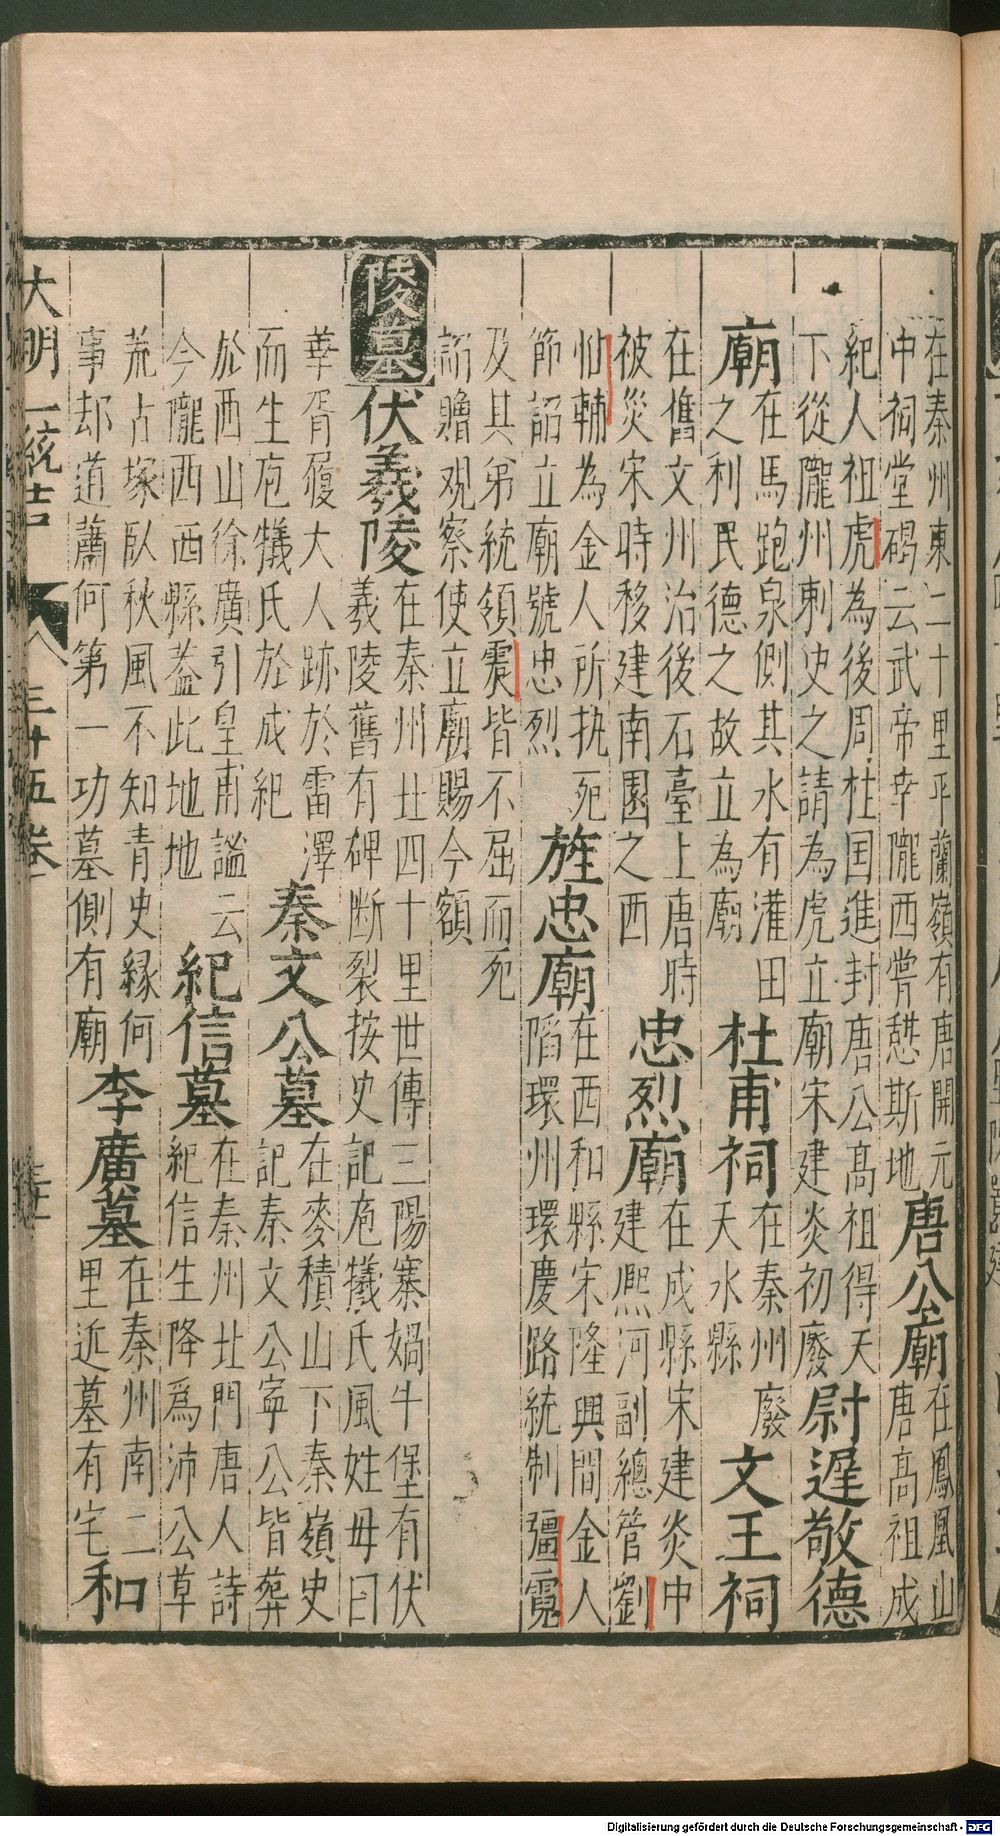 在秦州東二十里平蘭嶺有唐開元
中祠堂碣云武帝幸隴西嘗憇斯地
唐公廟
在鳳凰山
唐高祖成
紀人祖虎為後周柱国進封唐公高祖得天
下從隴州刺史之請為虎立廟宋建炎初廢
尉遲敬德
廟
在馬跑泉側其水有灌田
之利民德之故立為廟
杜甫祠
在秦州廢
天水縣
文王祠
在舊文州治後石臺上唐時
被災宋時移建南園之西
忠烈廟
在成縣宋建炎中
建熈河副總管劉
惟輔為金人所执死
節詔立廟號忠烈
旌忠廟
在西和縣宋隆興間金人
陷環州環慶路統制彊霓
及其弟統領震皆不屈而死
詔贈观察使立廟賜今額
陵墓
伏羲陵
在秦州北四十里世傳三陽寨媧牛堡有伏
羲陵舊有碑断裂按史記庖犧氏風姓母曰
華胥履大人跡於雷澤
而生庖犧氏於成紀
秦文公墓
在麥積山下秦嶺史
記秦文公寧公皆葬
於西山徐廣引皇甫謐云
今隴西西縣蓋此地地
紀信墓
在秦州北門唐人詩
紀信生降爲沛公草
荒古塚臥秋風不知青史緣何
事却道蕭何第一功墓側有廟
李廣墓
在秦州南二
里近墓有宅
和
大明一統志
三十五卷
Digitalisierung gefördert durch die Deutsche Forschungsgemeinschaft - DFG